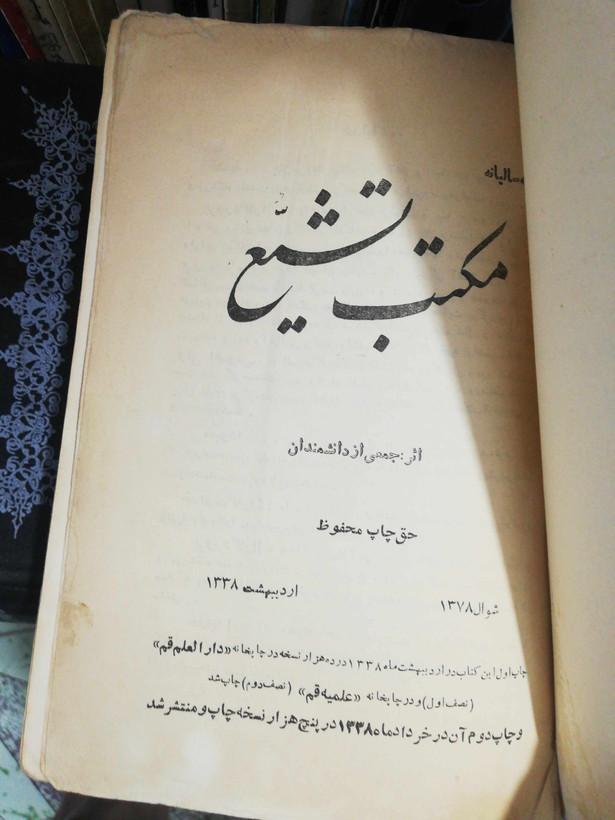 سالیانه
مکتب تشیّع
اثر: جمعی از دانشمندان
حق چاپ محفوظ
شوال ۱۳۷۸ اردیبهشت ۱۳۳۸
چاپ اول این کتاب در اردیبهشت ماه ۱۳۳۸ در ده هزار نسخه در چاپخانه «دارالعلم قم»
(نصف اول) و در چاپخانه «علمیه قم» (نصف دوم) چاپ شد
و چاپ دوم آن در خرداد ماه ۱۳۳۸ در پنج هزار نسخه چاپ و منتشر شد